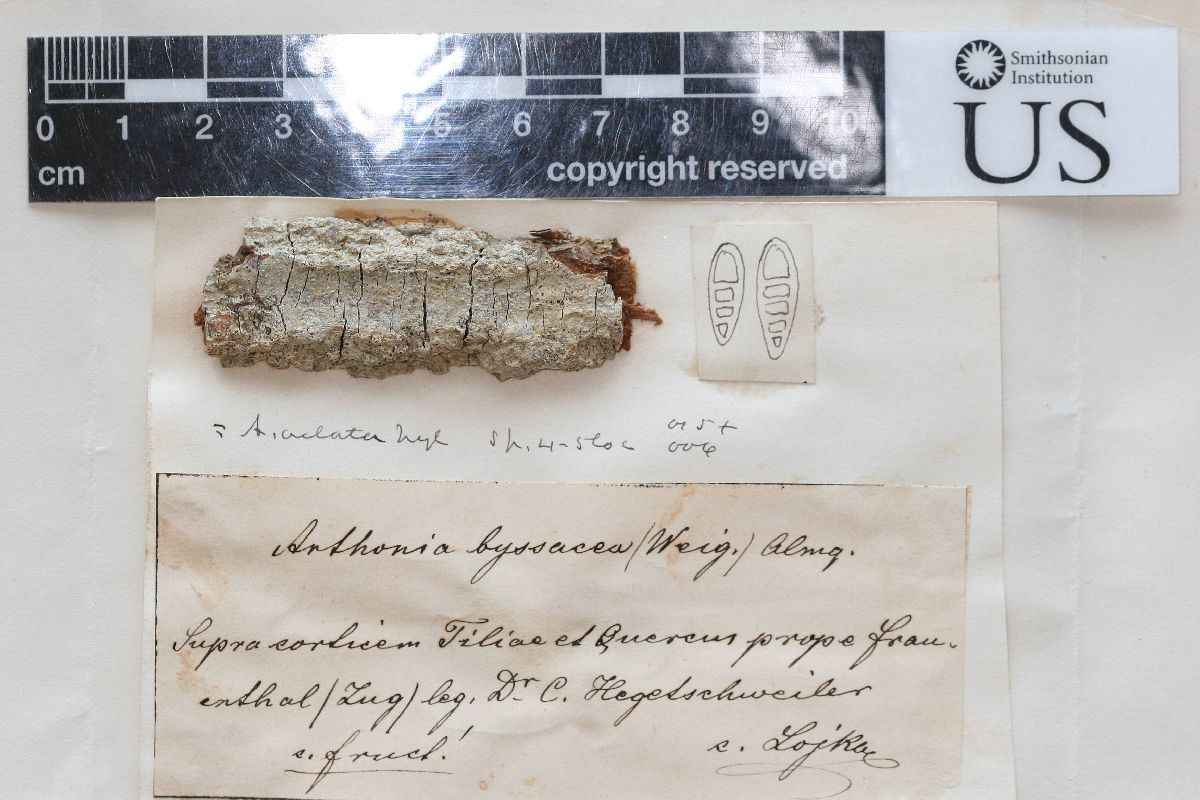 Smithsonian
Institution
US
0 1 2 3 5 6 7 8 9 10
cm
copyright reserved
= A. Nyl Sp. 4-5 loc
015 +
006
Arthonia byssacea (Weig.) Almq.
Supra corticem Tiliae et Quercus prope Frau-
enthal (Zug) leg. Dr C. Hegetschweiler
c. fruct.!
c. Lojka